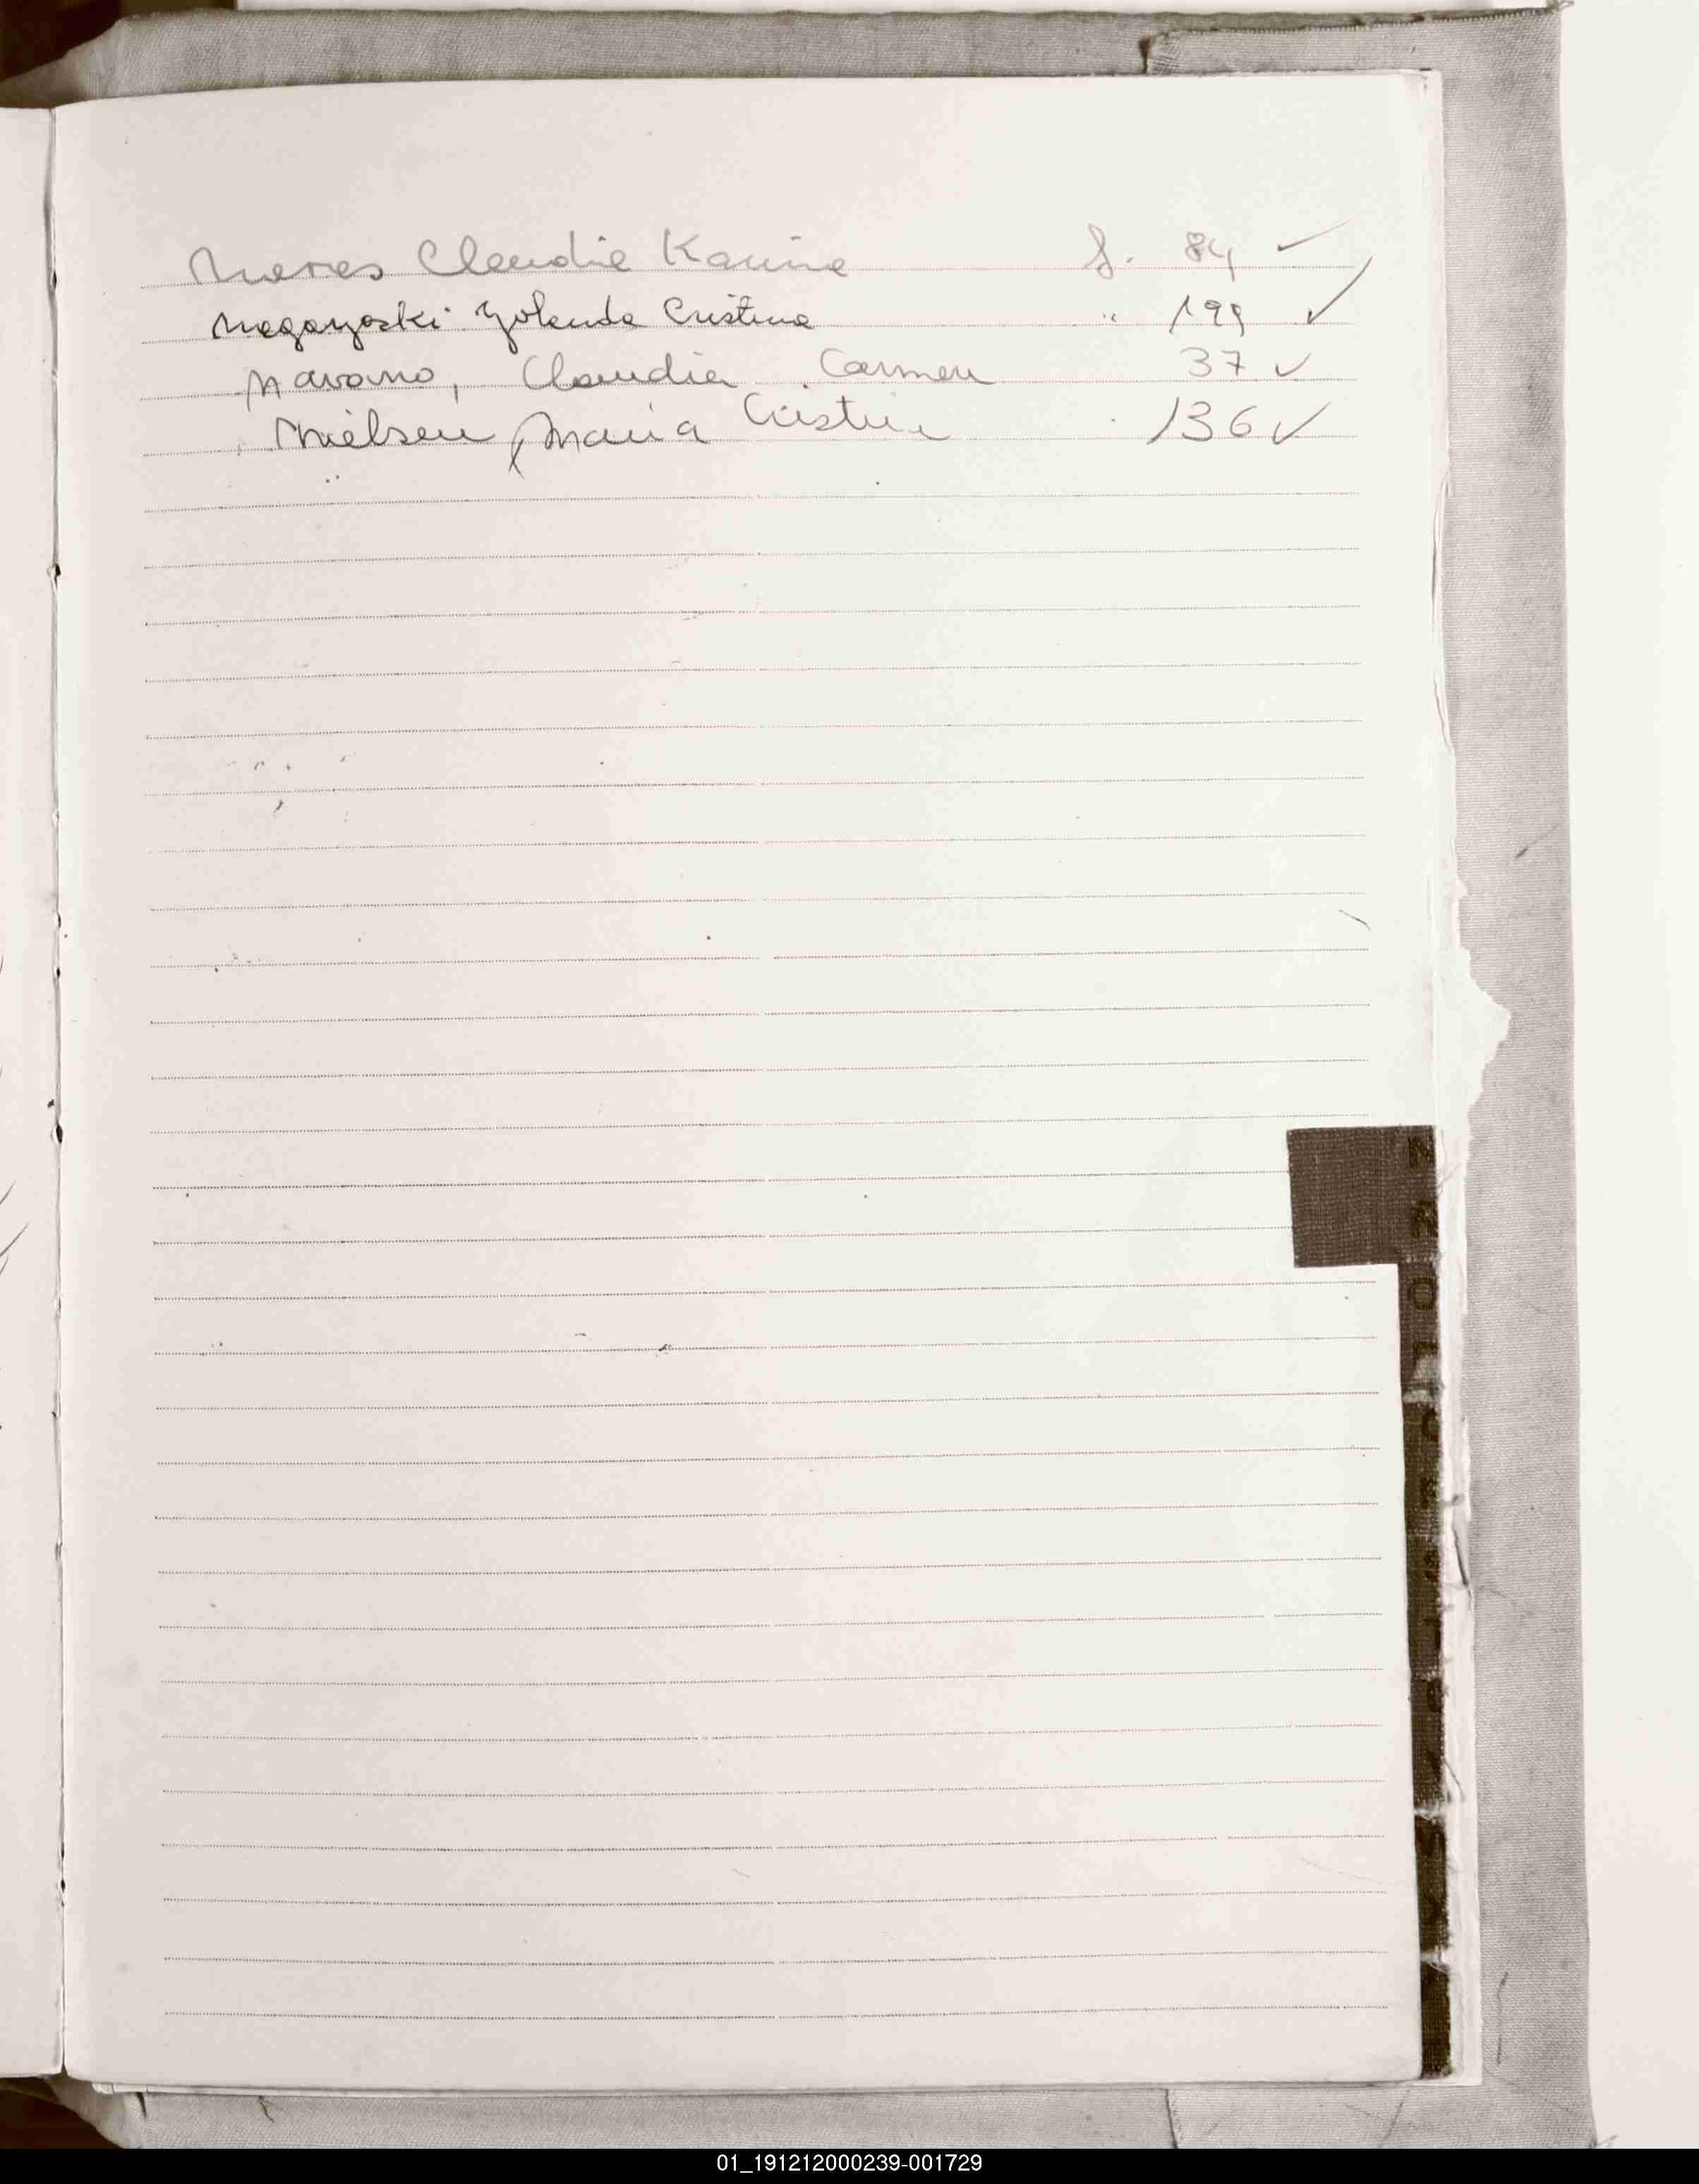 Neves Claudia Karina f. 84 ✓
Nagayoski Yolanda Cristina " 199 ✓
Navarro, Claudia Carmen 37 ✓
Nielsen, Maria Cristin 136 ✓
N
Ñ
O
01_191212000239-001729